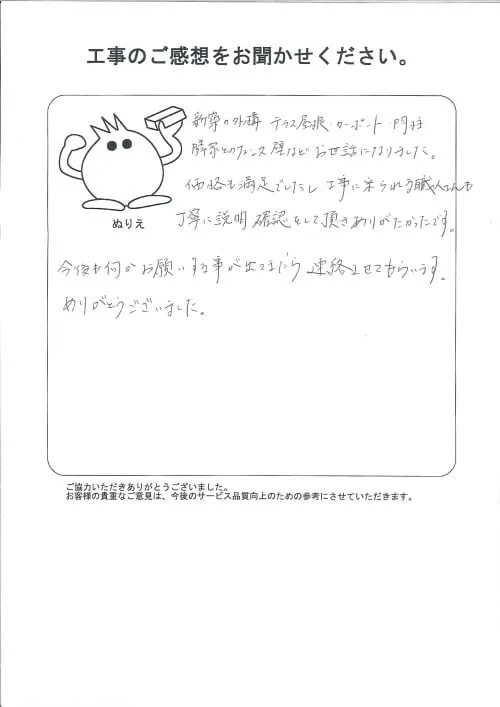 工事のご感想をお聞かせください。
新築の外構 テラス屋根・カーポート・門柱
隣家とのフェンス 壁などお世話になりました。
価格も満足でしたし、工事に来られる職人さんも
丁寧に説明 確認をして頂きありがたかったです。
ぬりえ
今後も何かお願いする事が出てきたら 連絡させてもらいます。
ありがとうございました。
ご協力いただきありがとうございました。
お客様の貴重なご意見は、今後のサービス品質向上のための参考にさせていただきます。